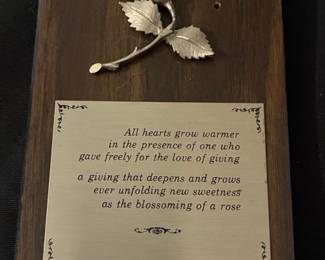 All hearts grow warmer
in the presence of one who
gave freely for the love of giving
a giving that deepens and grows
ever unfolding new sweetness
as the blossoming of a rose